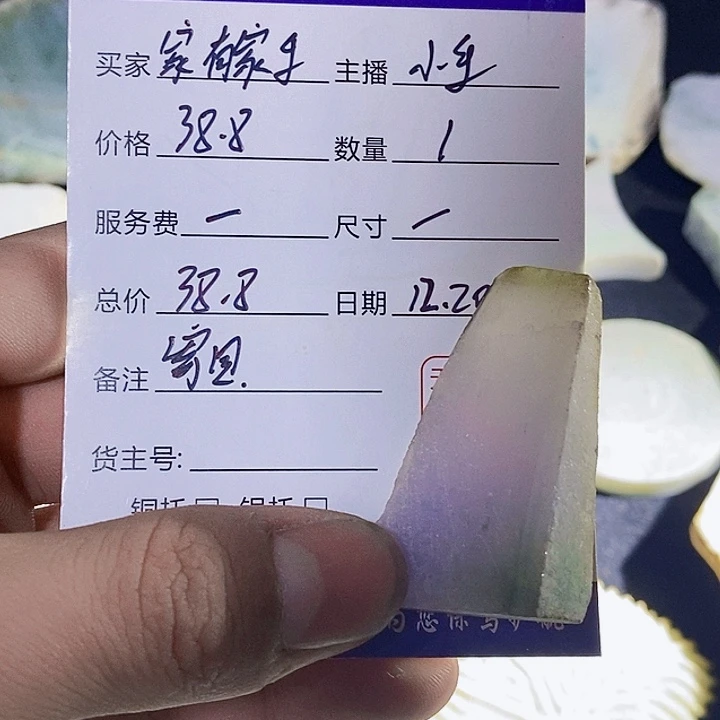 买家 家有家乎 主播 小乎
价格 38.8 数量 1
服务费 — 尺寸 —
总价 38.8 日期 12.2
备注 寄回.
货主号:
铜托 □ 铝托 □